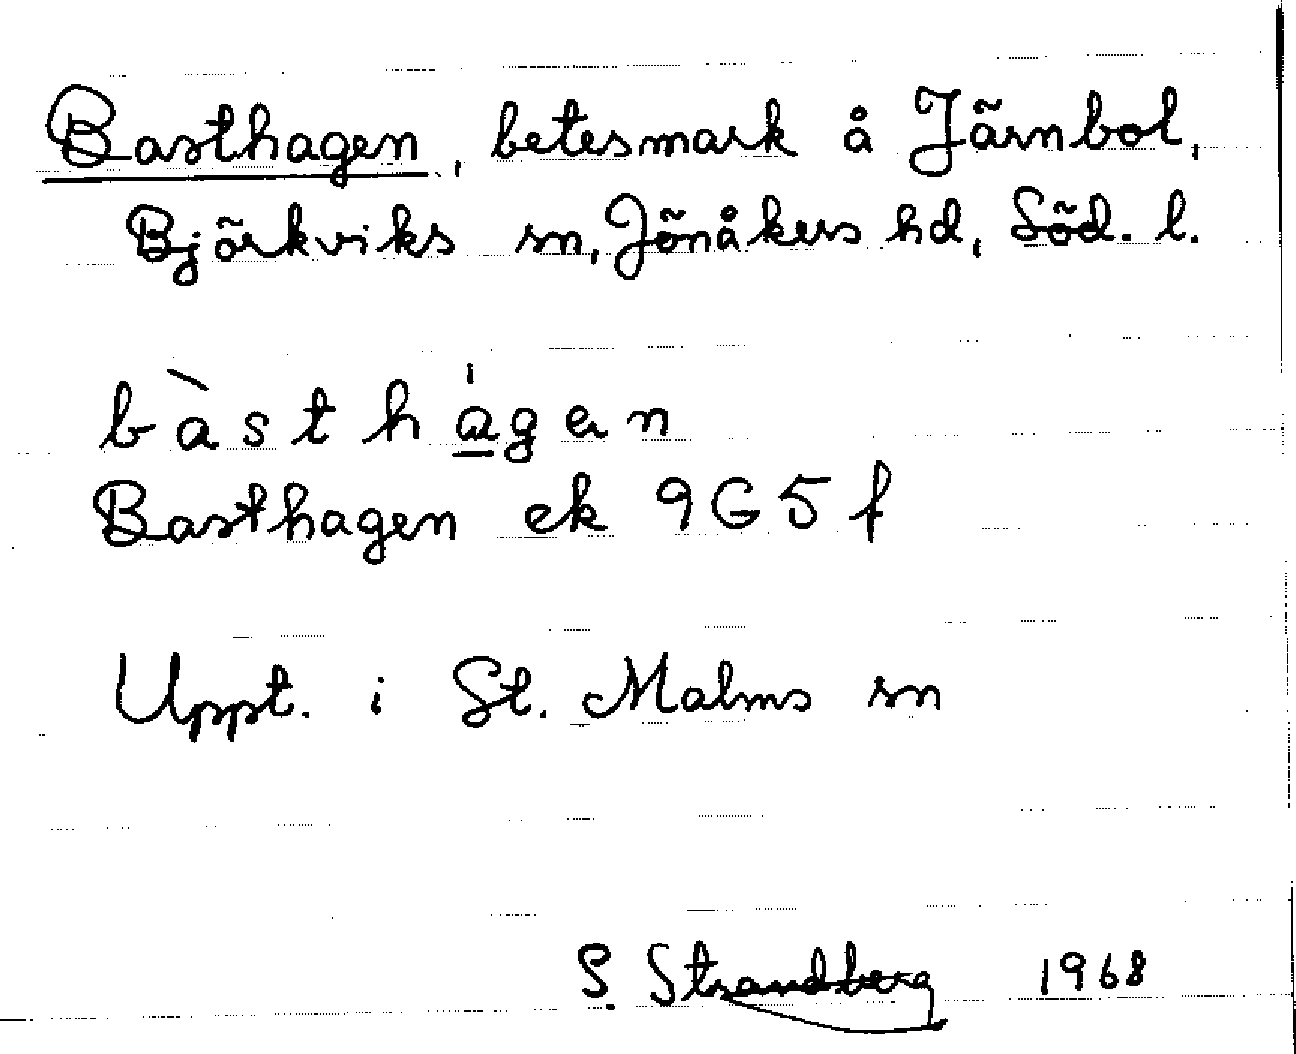 Basthagen, betesmark å Järnbol,
Björkviks sn, Jönåkers hd, Söd. l.
bàstha̲̍gen
Basthagen ek 9G5f
Uppt. i St. Malms sn
S. Strandberg 1968